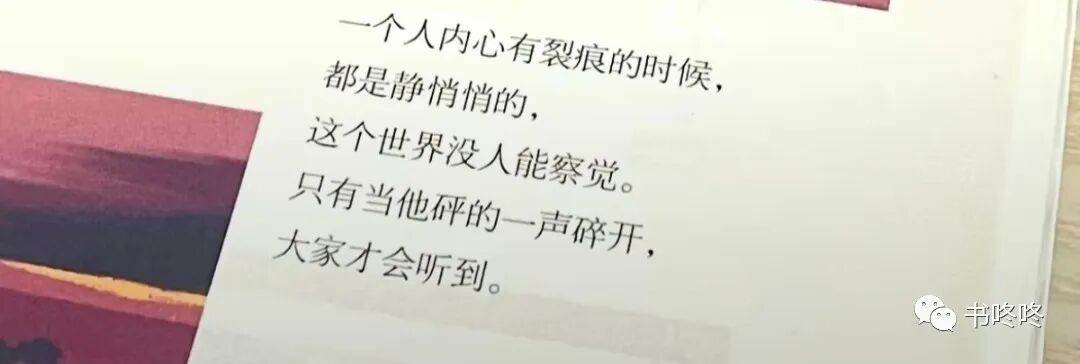 一个人内心有裂痕的时候，
都是静悄悄的，
这个世界没人能察觉。
只有当他砰的一声碎开，
大家才会听到。
书咚咚